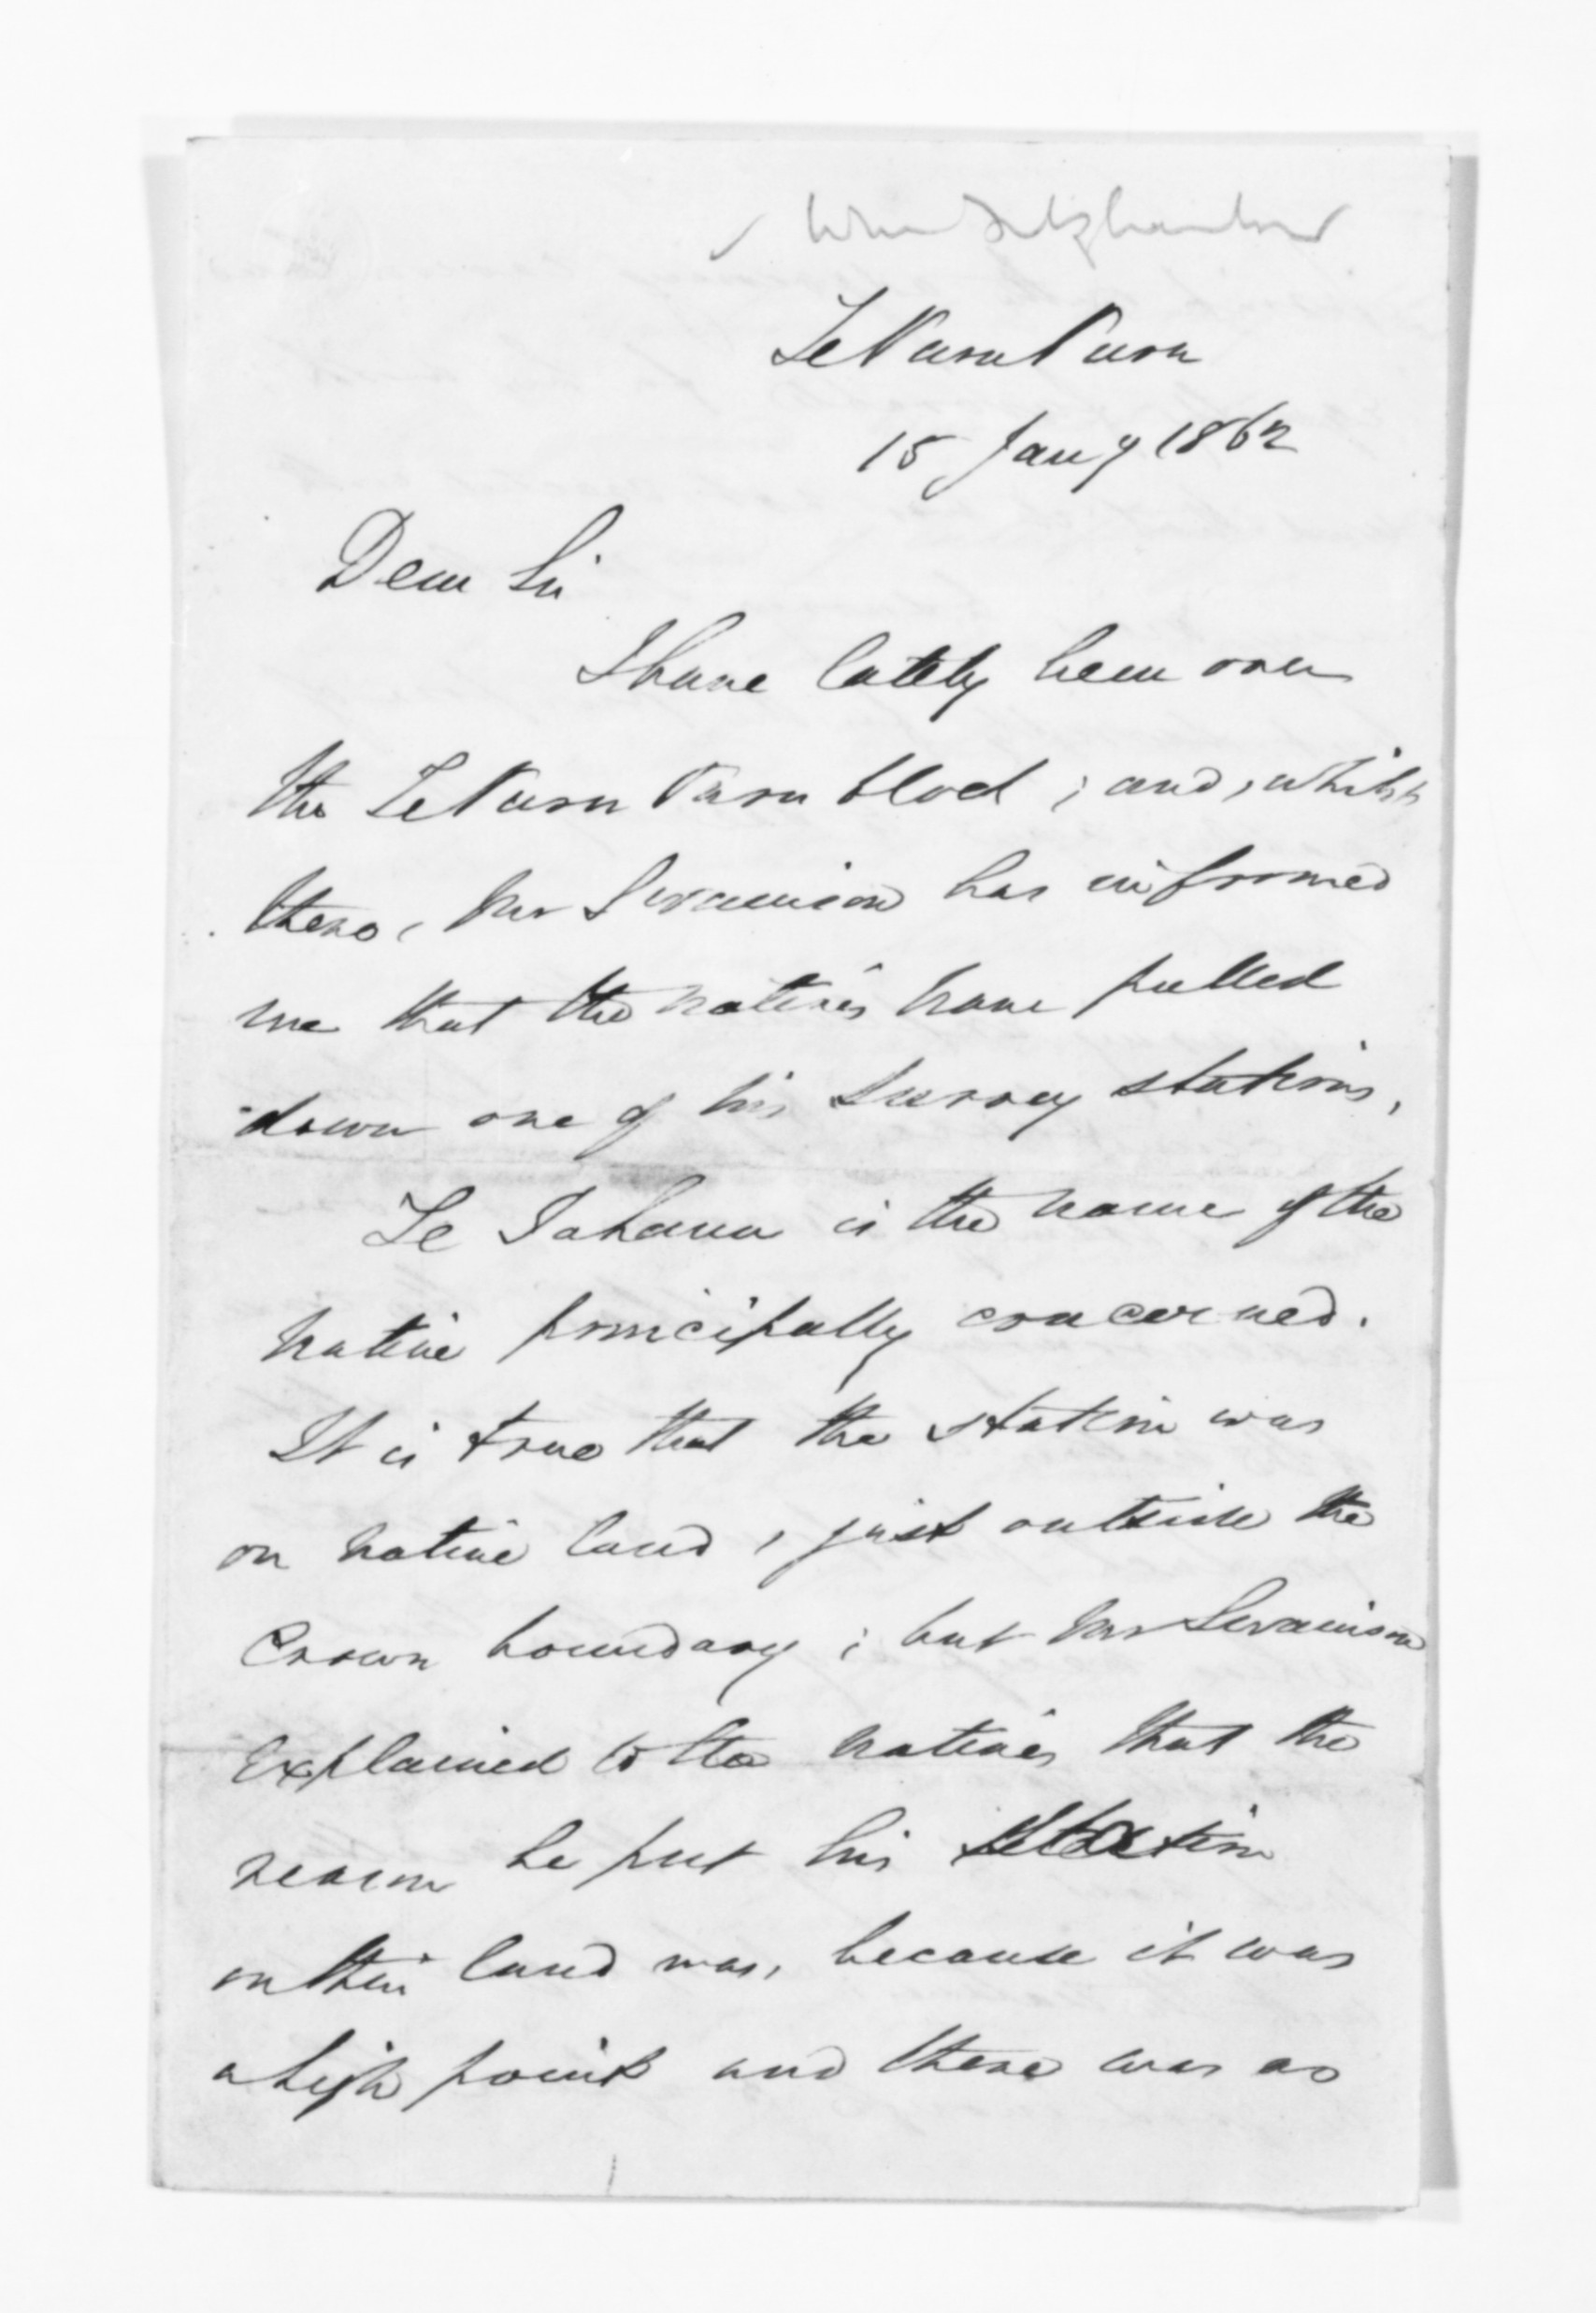 Dear Sir
I have lately been over
the block ; and, whilst
there, Mr Swainson has informed
me that the natives have pulled
down one of his Survey stations,
Te is the name of the
native principally concerned.
It is true that the station was
on native land, just outside the
Crown boundary ; but Mr Swainson
explained to the natives that the
reason he put his station
on their land was, because it was
a high point and there was no
15 Jany 1862